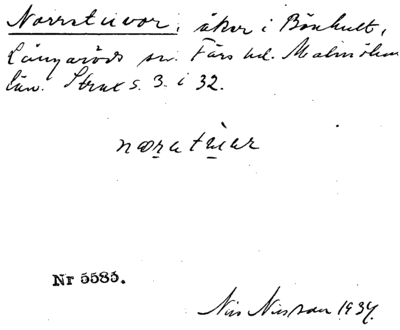 Norrstuvor, åker i Bönhult,
Långaröds sn. Färs hd. Malmöhus
län. Strax s. 3. i 32.
Nr 5585.
Nils Nilsson 1934.